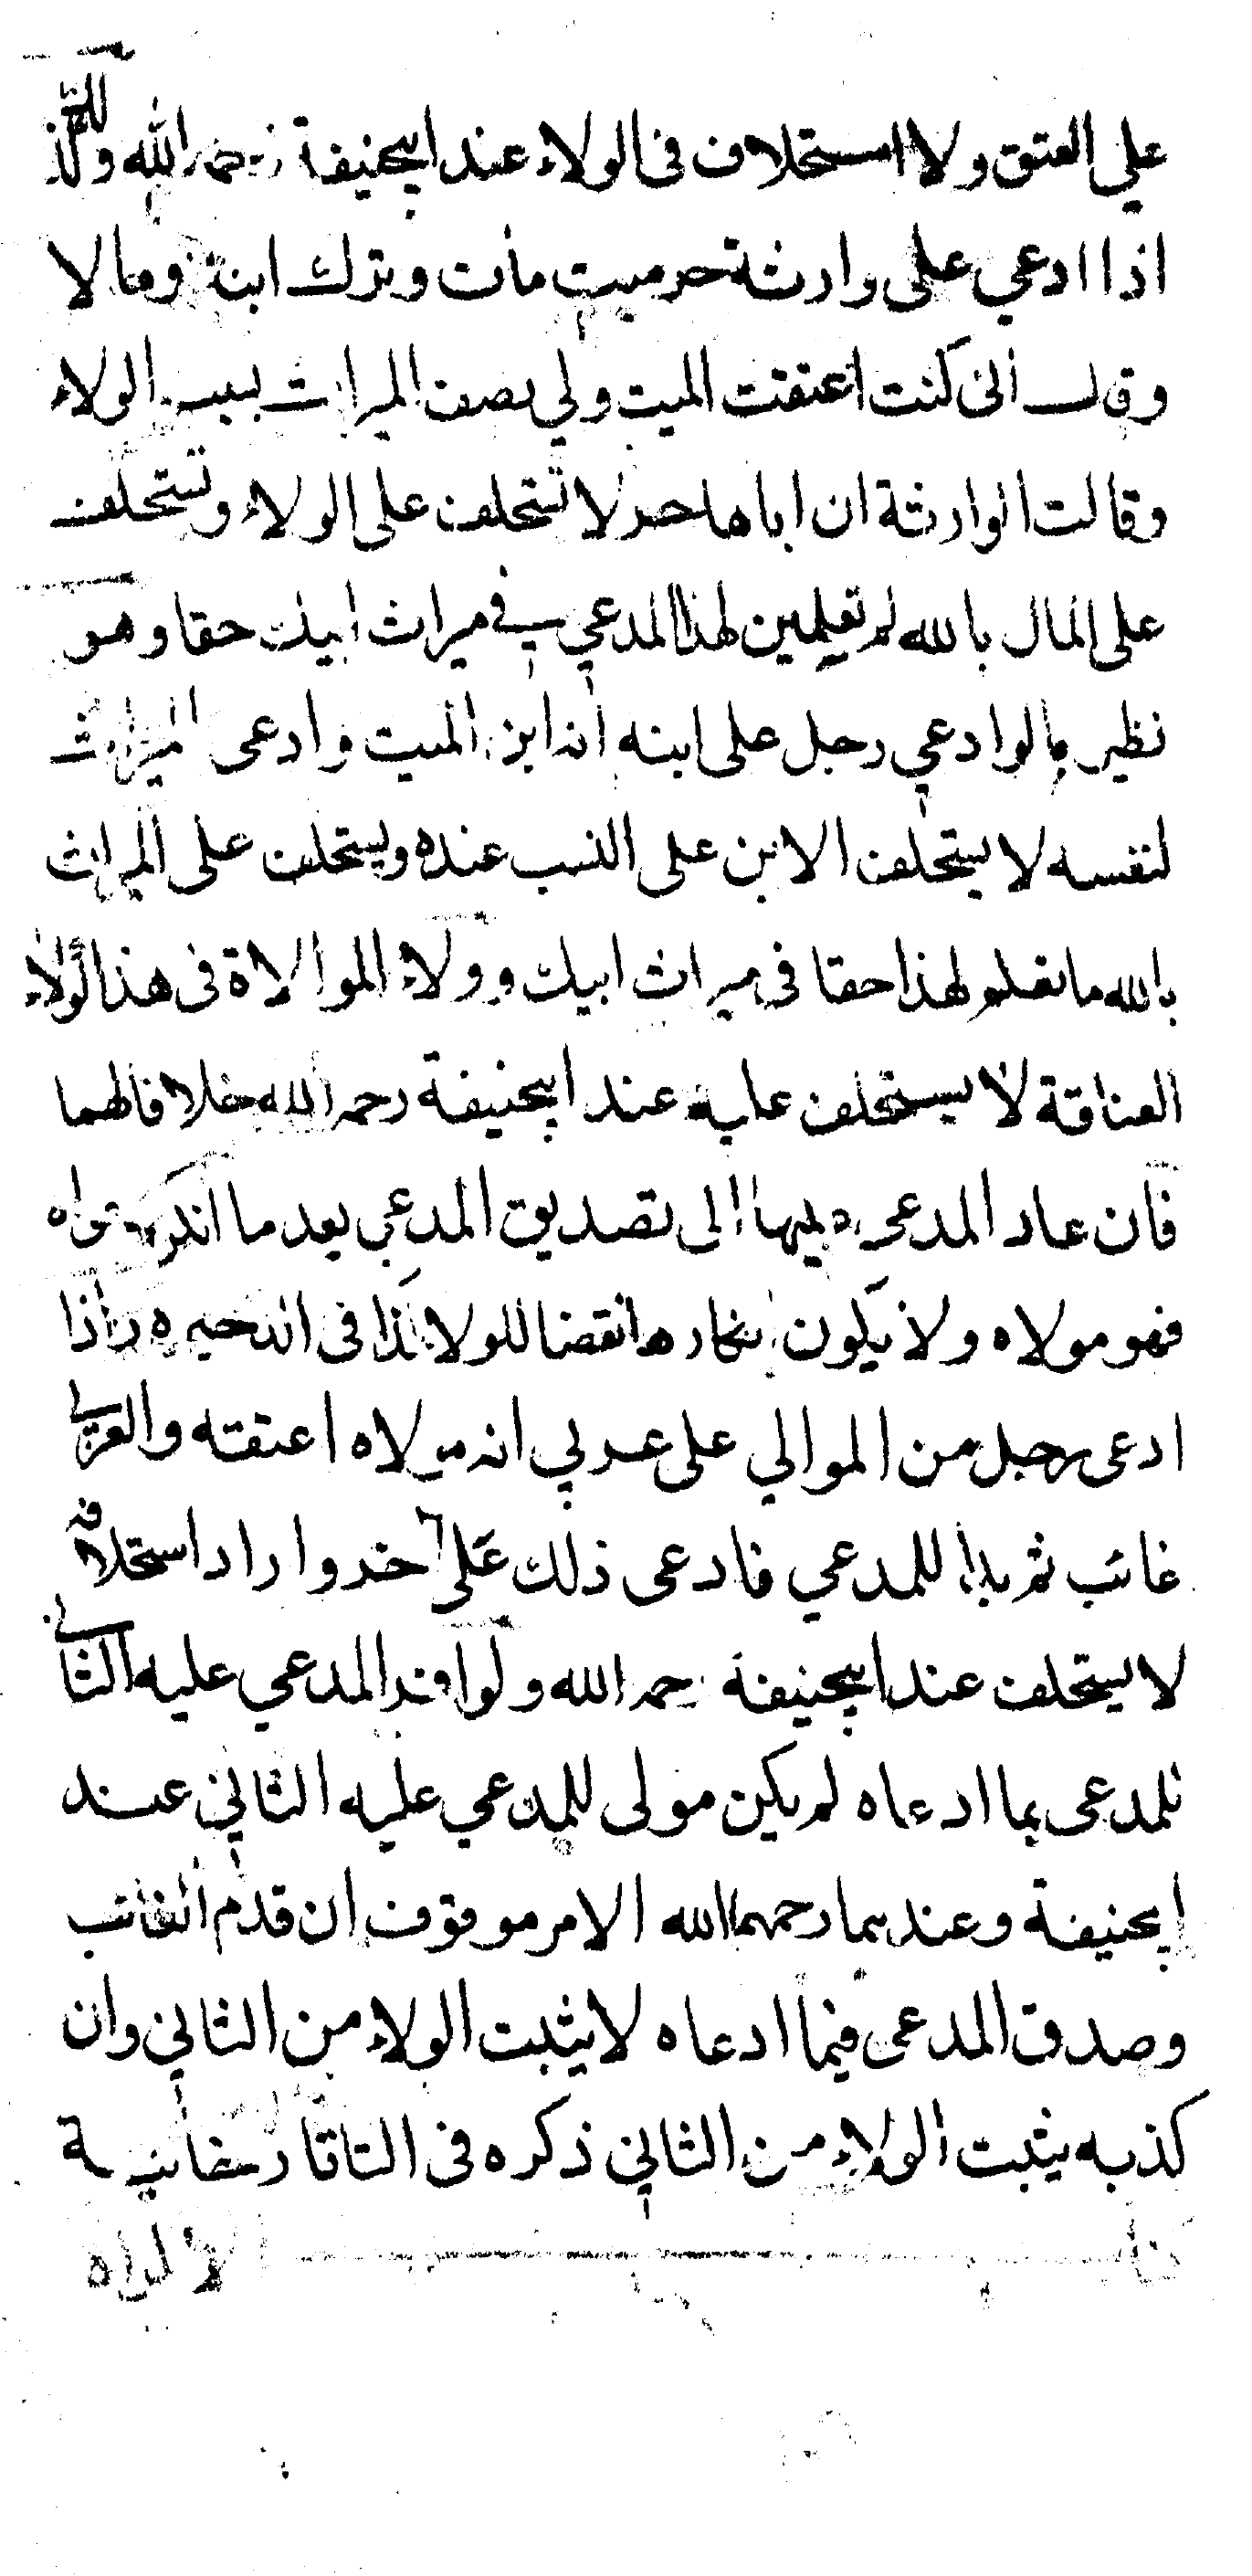 علي العتق ولا استحلاف فى الولاء عند ابيحنيفة رحمه الله وكذا
اذا ادعي على وارثة حر ميت مات وترك ابنة ومالا
وقال انى كنت اعتقت الميت ولي نصف الميراث بسبب الولاء
وقالت الوارثة ان اباها حر لا تستحلف على الولاء وتستحلف
على المال بالله لم تعلمين لهذا المدعي في ميراث ابيك حقا وهو
نظير مالو ادعي رجل على ابنه انه ابن الميت وادعى الميراث
لنفسه لا يستحلف الابن على النسب عنده ويستحلف على الميراث
بالله ما نعلم لهذا حقا فى ميراث ابيك وولاء الموالاة فى هذا كولاء
العتاقة لا يستحلف عليه عند ابيحنيفة رحمه الله خلافا لهما
فان عاد المدعى الى تصديق المدعي بعد ما انكر
فهو مولاه ولا يكون انكاره نقضا للولا كذا فى الذخيره واذا
ادعى رجل من الموالي على عربي انه مولاه اعتقه والعربي
غائب ثم بدا للمدعي فادعى ذلك على اخر واراد استحلافه
لا يستحلف عند ابيحنيفة رحمه الله ولو اقر المدعي عليه الثاني
للمدعى بما ادعاه لم يكن مولى للمدعي عليه الثاني عند
ابيحنيفة وعندهما رحمهما الله الامر موقوف ان قدم الغائب
وصدق المدعى فيما ادعاه لا يثبت الولاء من الثاني وان
كذبه يثبت الولاء من الثاني ذكره فى التاتارخانية
الاكراه